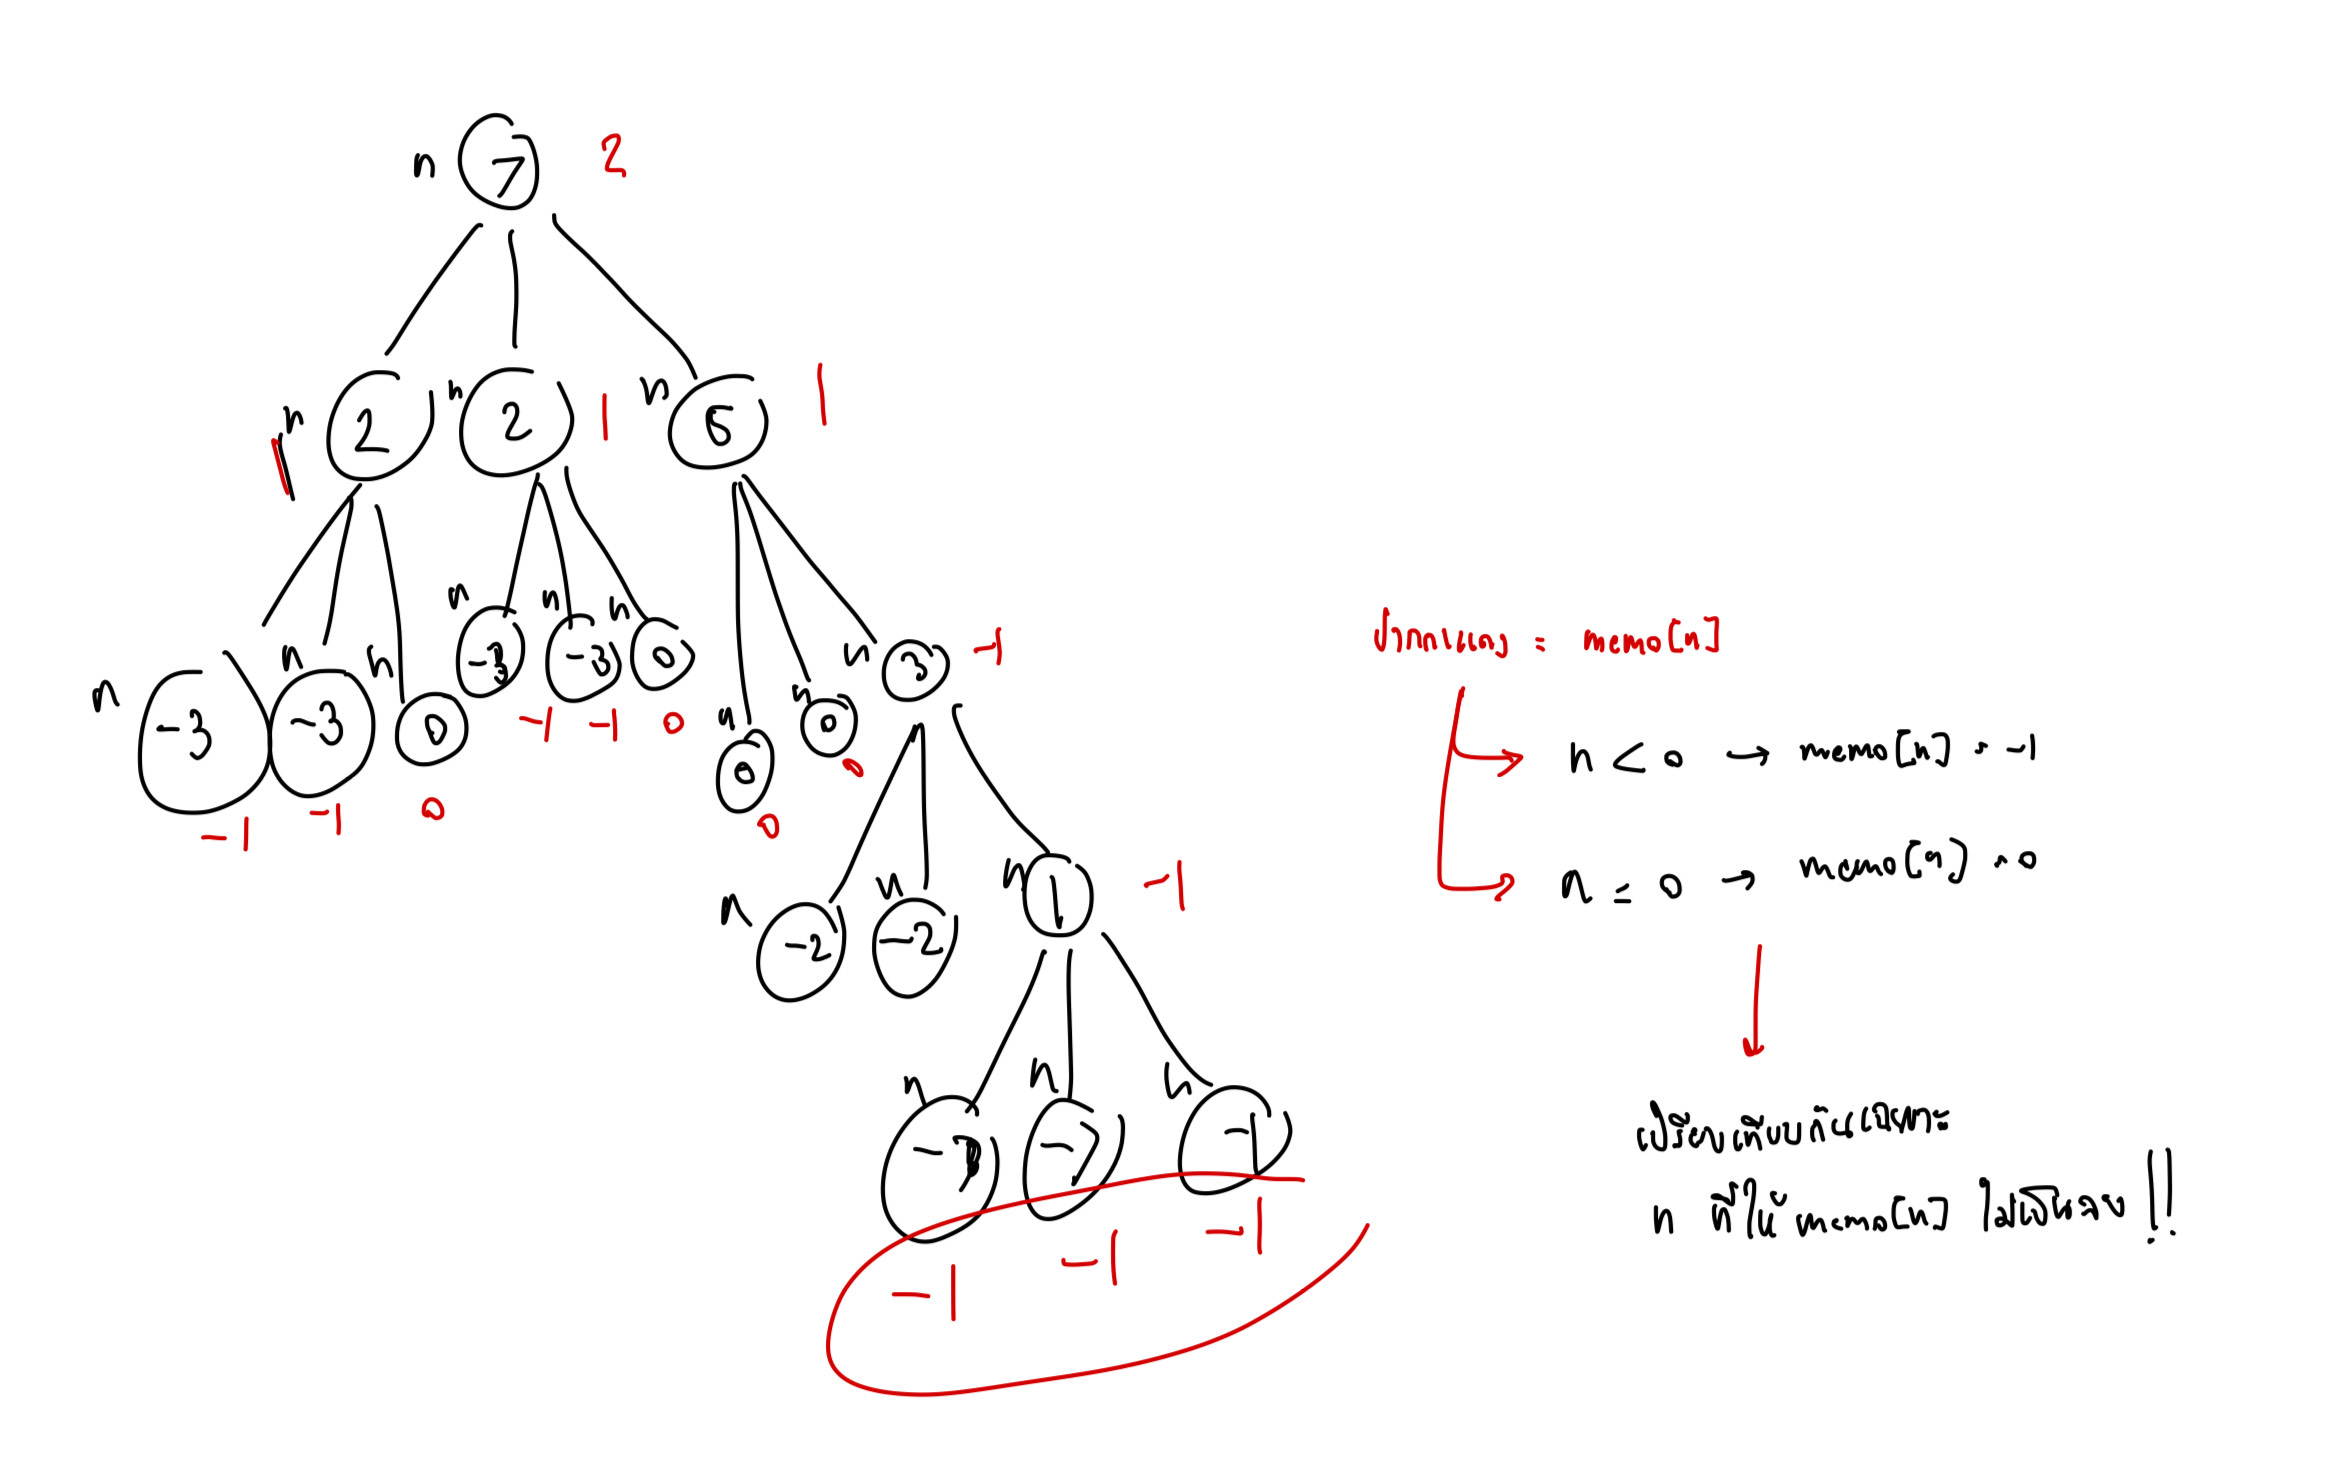 n 7 2
n 2 n 2 1 n 5 1
n -3 n -3 n 0 n -3 n -3 n 0 n 0 n 0 n 3 -1
-1 -1 0 -1 -1 0 0 0
n -2 n -2 n 1 -1
n n -7 n -1
-1 -1 -1
สีแดง = memo[n]
n < 0 → memo[n] = -1
n = 0 → memo[n] = 0
เปรียบเทียบกันเฉพาะ
n ที่ให้ memo[n] ไม่เป็นลบ !!